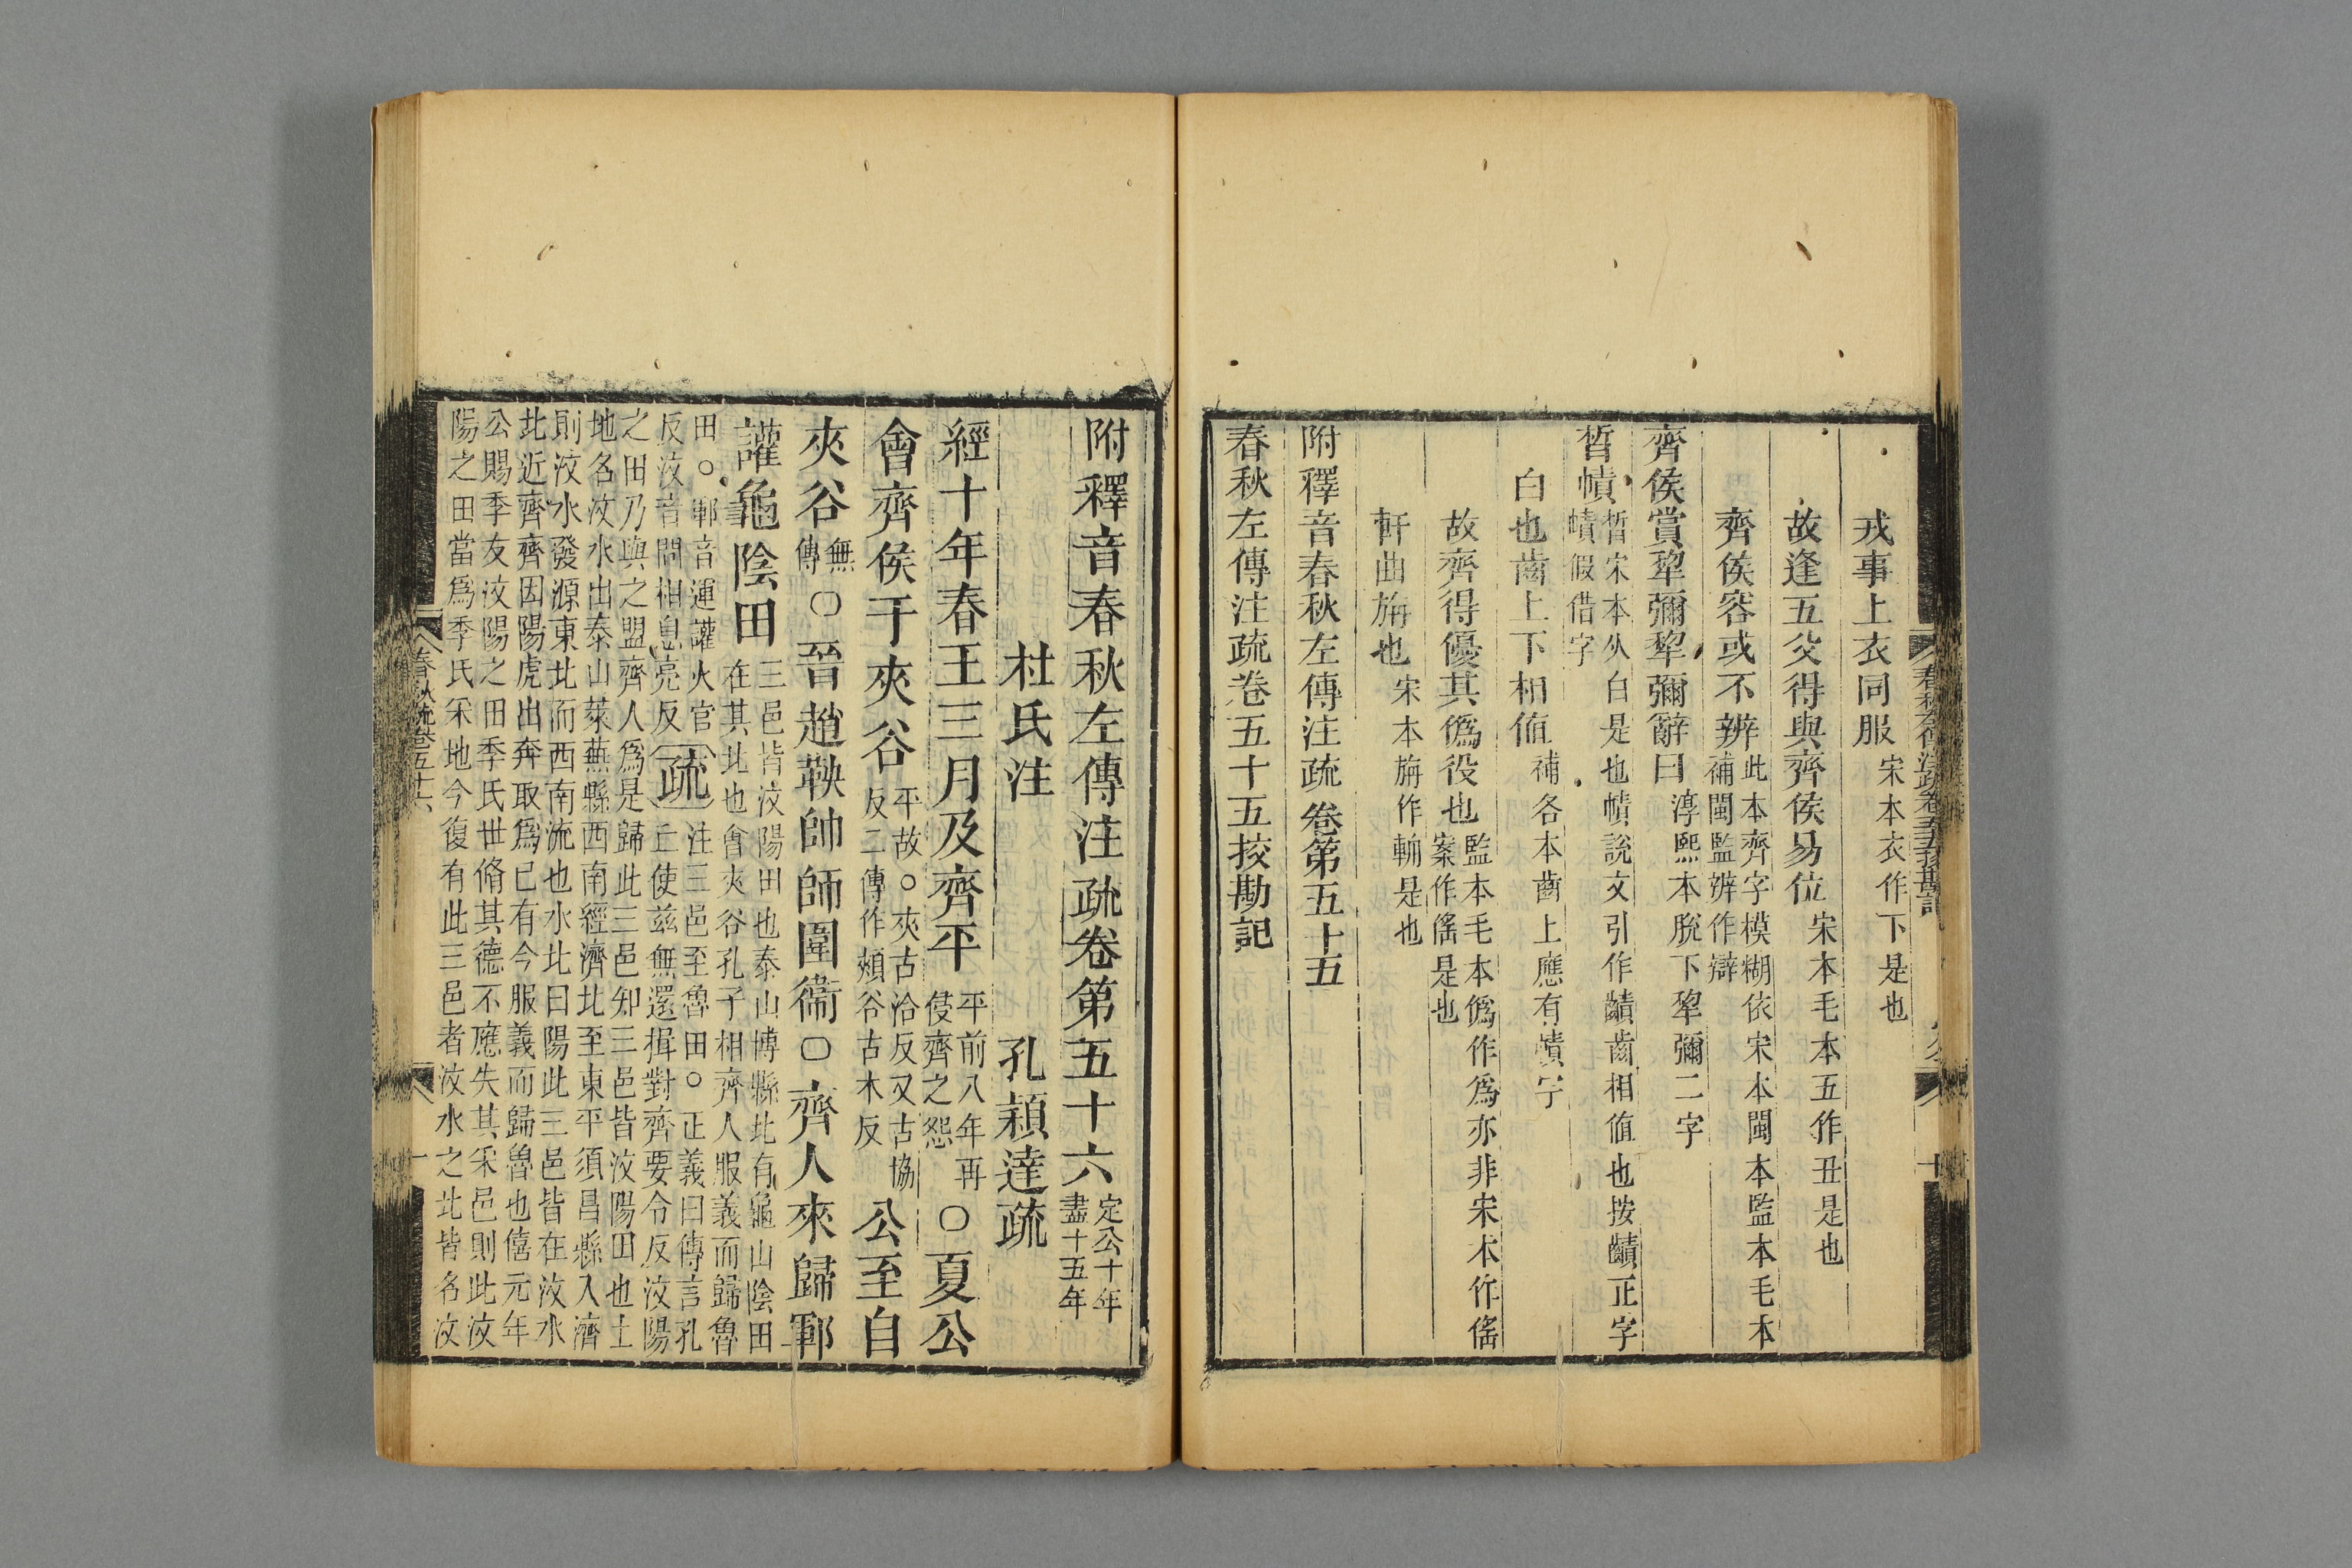 戎事上衣同服宋本衣作下是也
故逢五父得與齊侯易位宋本毛本五作丑是也
齊侯容或不辨此本齊字模糊依宋本閩本監本毛本補閩監辨作辯
齊侯賞犂彌犂彌辭曰淳熙本脫下犂彌二字
晳幘晳宋本从白是也幘說文引作䶦齒相值也按䶦正字幘假借字
白也齒上下相值補各本齒上應有幘字
故齊得優其僞役也監本毛本僞作爲亦非宋本作傜案作傜是也
軒曲旃也宋本旃作輈是也
附釋音春秋左傳注疏卷第五十五
春秋左傳注疏卷五十五挍勘記
附釋音春秋左傳注疏卷第五十六定公十年盡十五年
杜氏注 孔穎達疏
經十年春王三月及齊平平前八年再侵齊之怨○夏公
會齊侯于夾谷平故○夾古洽反又古協反二傳作頰谷古木反公至自
夾谷無傳○晉趙鞅帥師圍衞○齊人來歸鄆
讙龜陰田三邑皆汶陽田也泰山博縣北有龜山陰田在其北也會夾谷孔子相齊人服義而歸魯
田○鄆音運讙火官反汶音問相息亮反疏注三邑至魯田○正義曰傳言孔丘使兹無還揖對齊要令反汶陽
之田乃與之盟齊人爲是歸此三邑知三邑皆汶陽田也土
地名汶水出泰山萊蕪縣西南經濟北至東平須昌縣入濟
則汶水發源東北而西南流也水北曰陽此三邑皆在汶水
北近齊齊因陽虎出奔取爲已有今服義而歸魯也僖元年
公賜季友汶陽之田季氏世脩其德不應失其采邑則此汶
陽之田當爲季氏采地今復有此三邑者汶水之北皆名汶
春秋疏卷五十六
一